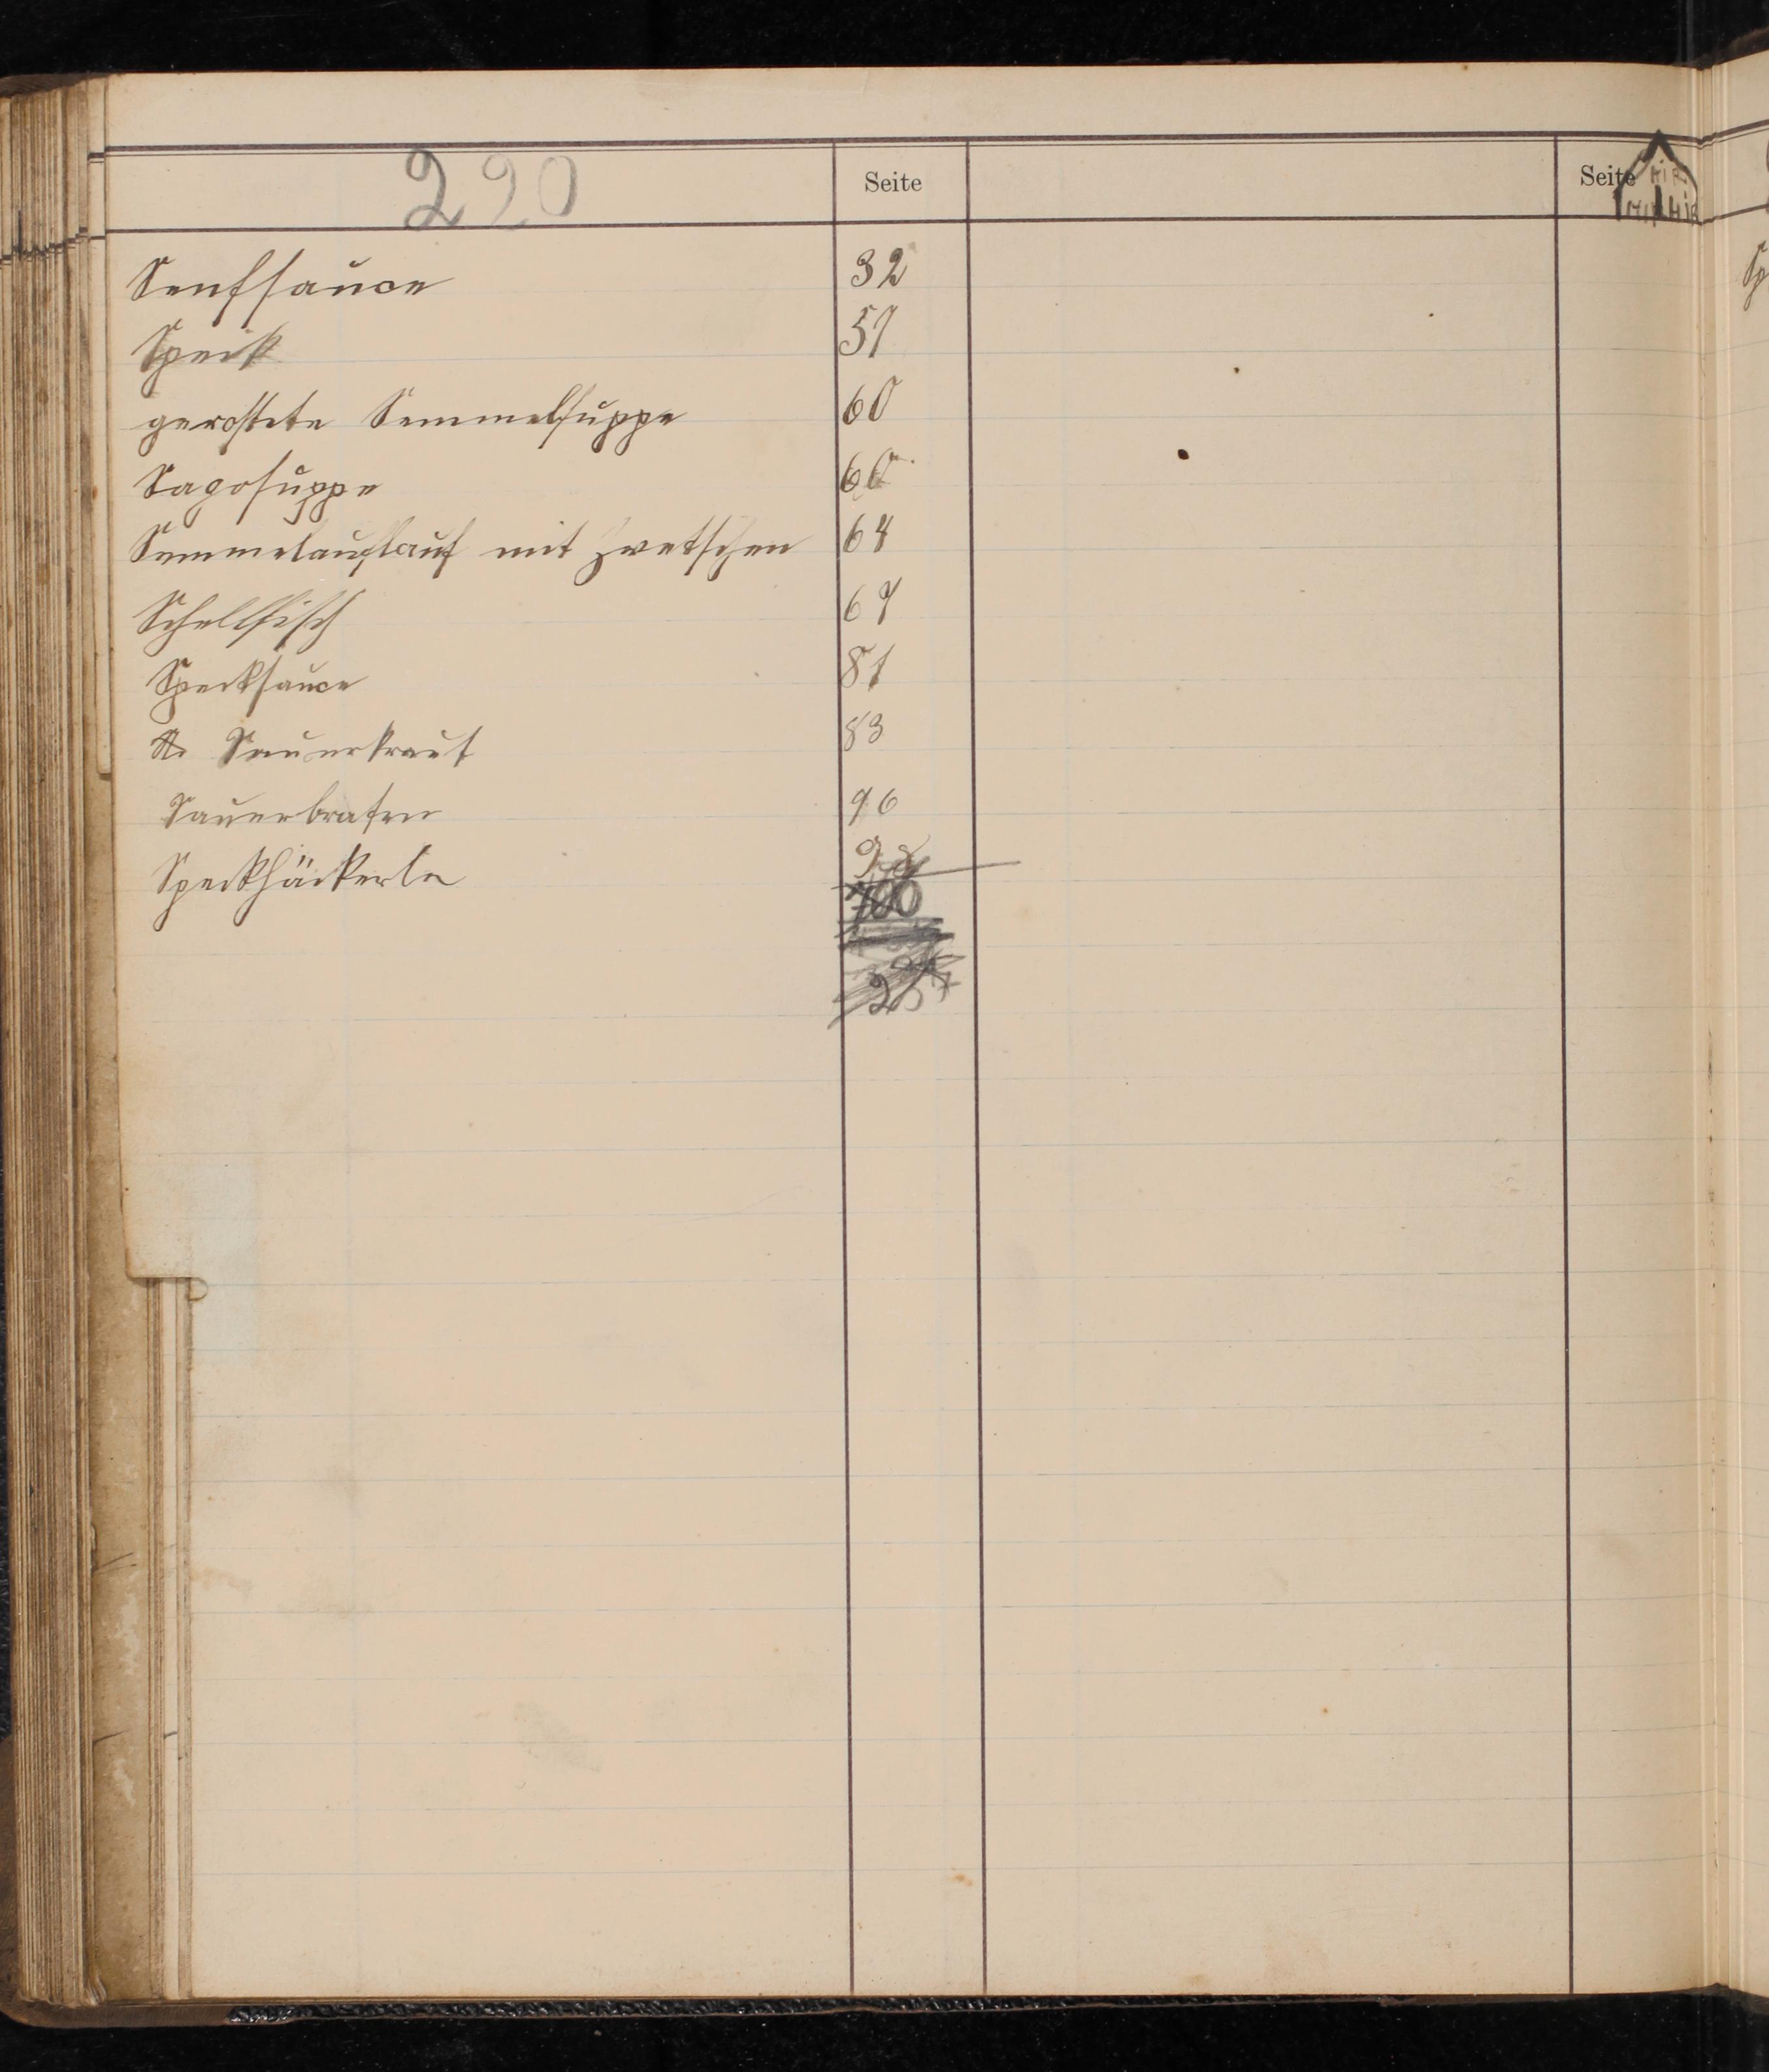 220 Seite Seite
Senfsauce 32
Speck 57
gerostete Semmelsuppe 60
Sagosuppe 60
Semmelauflauf mit Zwetschen 64
Schellfisch 67
Specksauce 81
Sauerkraut 83
Sauerbraten 96
Speckhäckerle 98
100